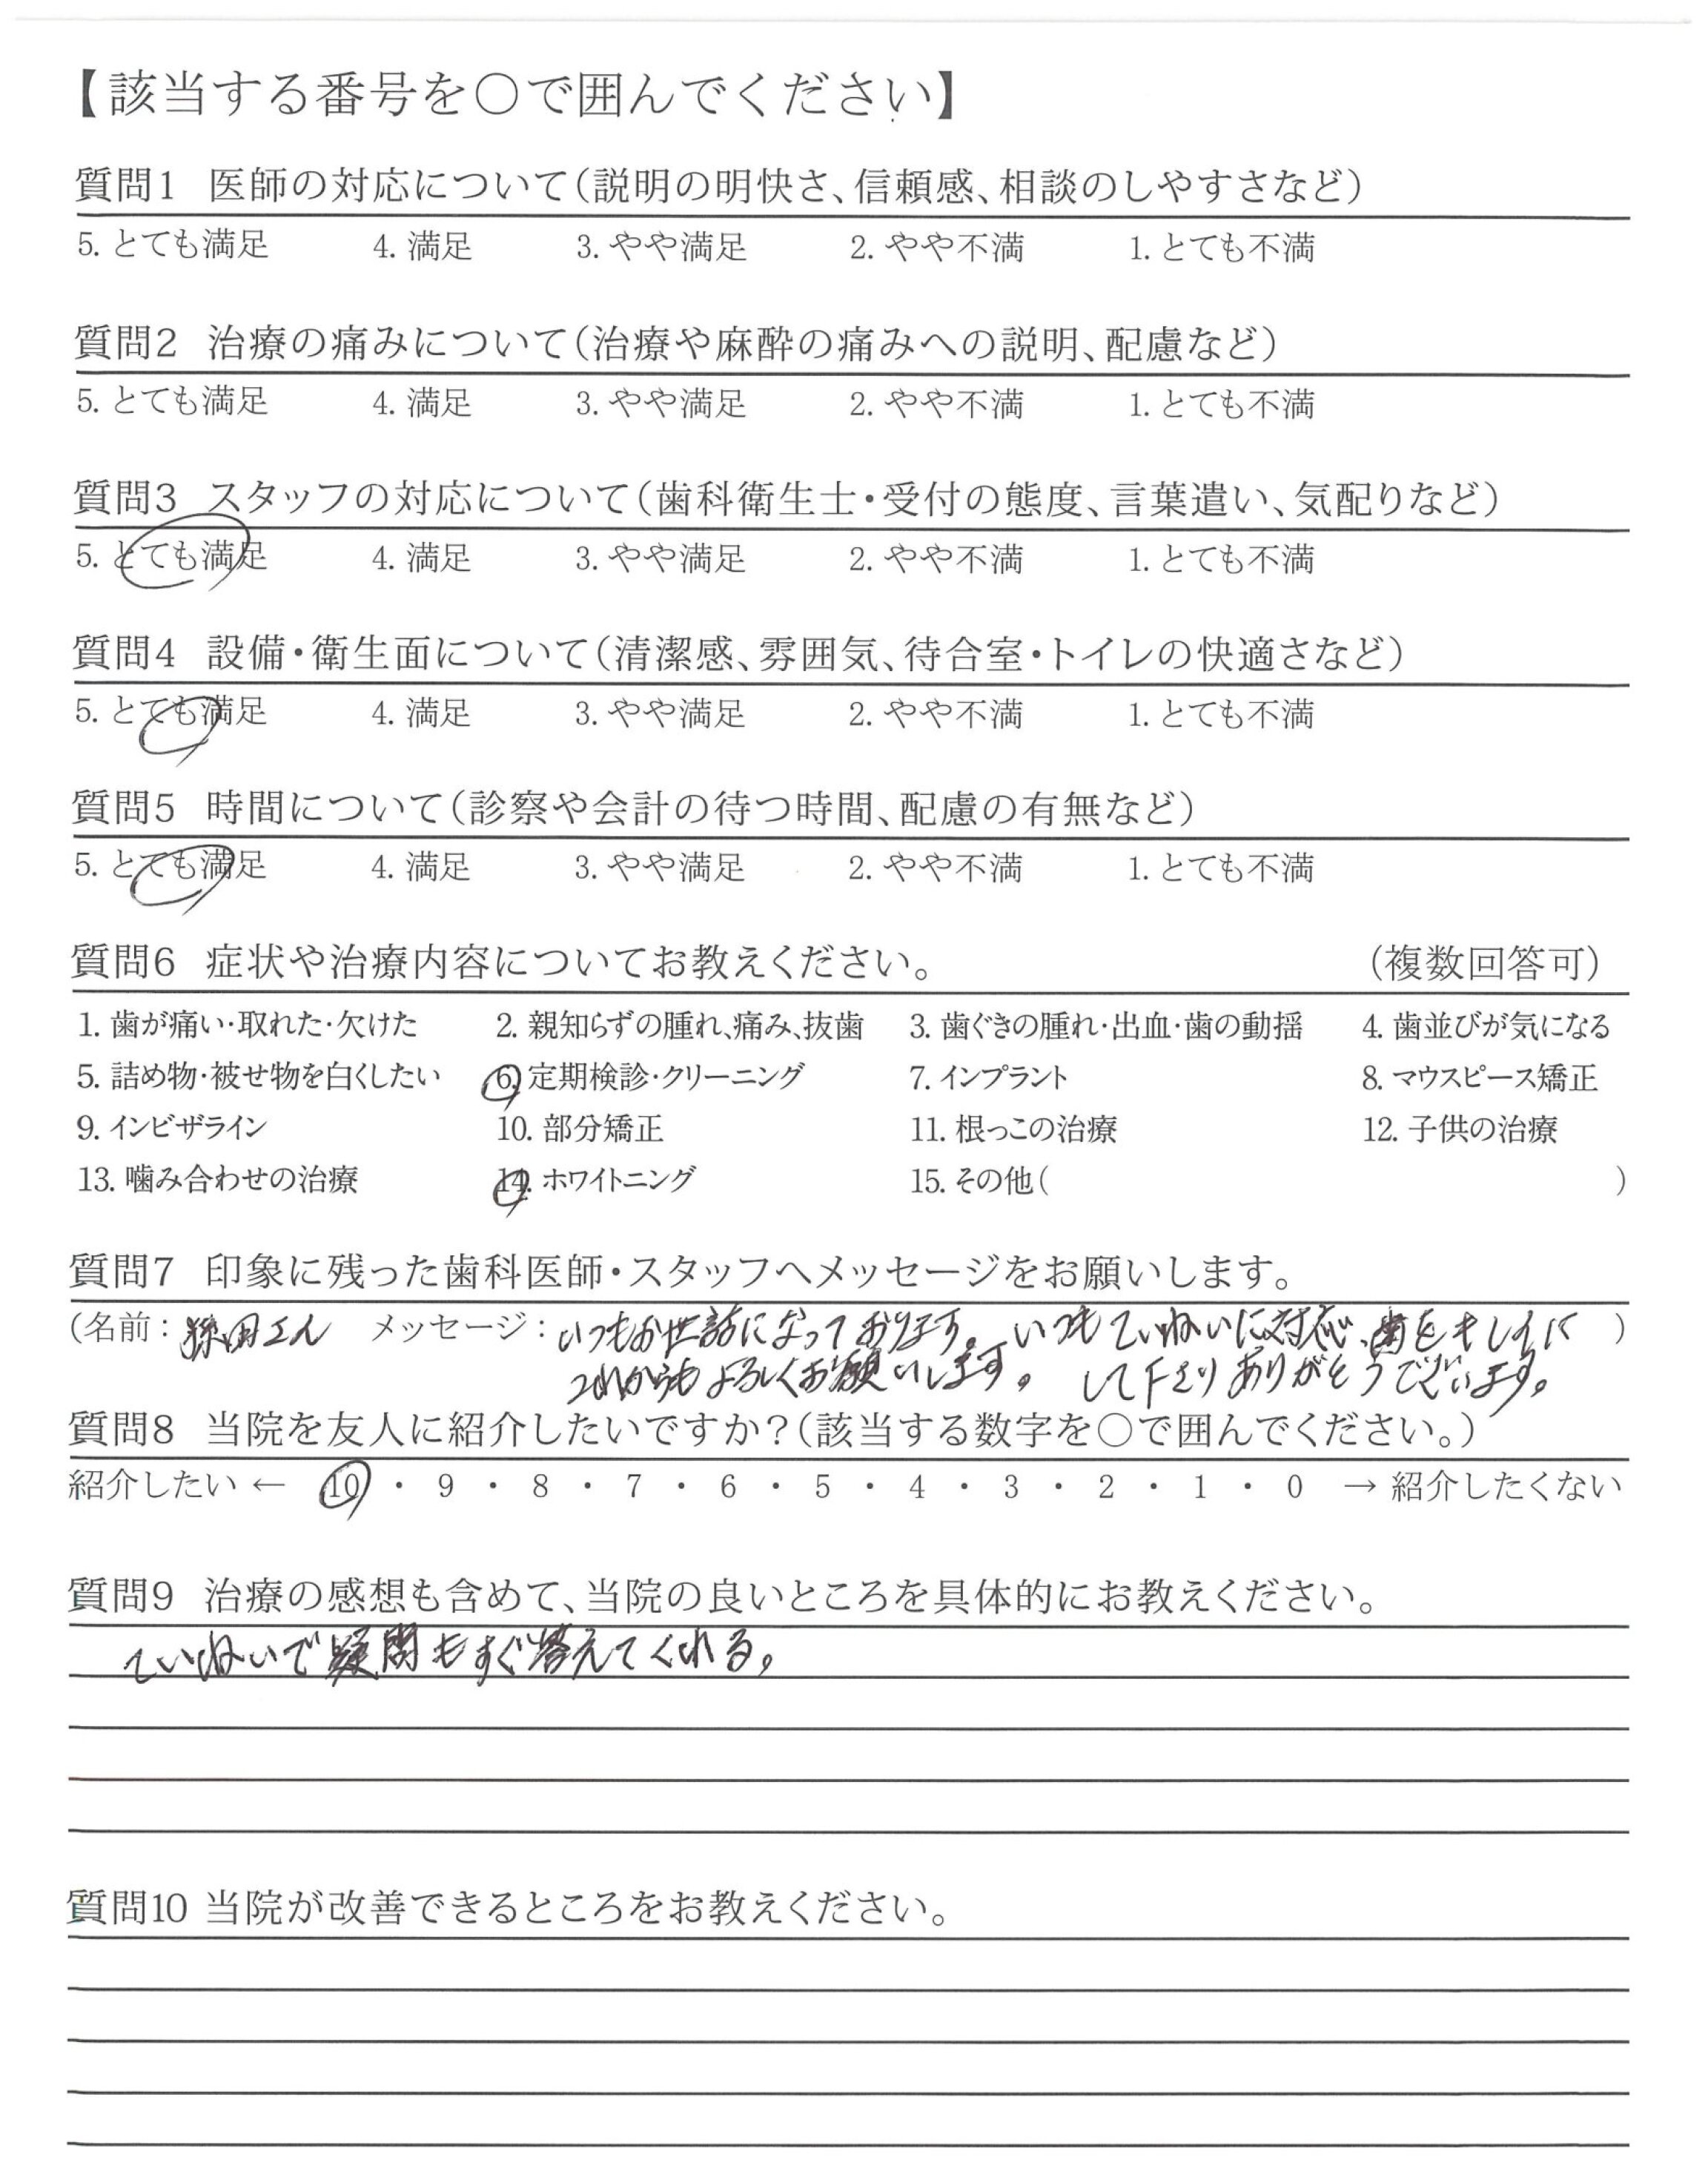 【該当する番号を○で囲んでください】
質問1 医師の対応について(説明の明快さ、信頼感、相談のしやすさなど)
5. とても満足 4. 満足 3. やや満足 2. やや不満 1. とても不満
質問2 治療の痛みについて(治療や麻酔の痛みへの説明、配慮など)
5. とても満足 4. 満足 3. やや満足 2. やや不満 1. とても不満
質問3 スタッフの対応について(歯科衛生士・受付の態度、言葉遣い、気配りなど)
5. とても満足 4. 満足 3. やや満足 2. やや不満 1. とても不満
質問4 設備・衛生面について(清潔感、雰囲気、待合室・トイレの快適さなど)
5. とても満足 4. 満足 3. やや満足 2. やや不満 1. とても不満
質問5 時間について(診察や会計の待つ時間、配慮の有無など)
5. とても満足 4. 満足 3. やや満足 2. やや不満 1. とても不満
質問6 症状や治療内容についてお教えください。 (複数回答可)
1. 歯が痛い・取れた・欠けた 2. 親知らずの腫れ、痛み、抜歯 3. 歯ぐきの腫れ・出血・歯の動揺 4. 歯並びが気になる
5. 詰め物・被せ物を白くしたい 6. 定期検診・クリーニング 7. インプラント 8. マウスピース矯正
9. インビザライン 10. 部分矯正 11. 根っこの治療 12. 子供の治療
13. 噛み合わせの治療 14. ホワイトニング 15. その他( )
質問7 印象に残った歯科医師・スタッフへメッセージをお願いします。
(名前: さん メッセージ: いつもお世話になっております。いつもていねいに対応、歯をキレイに )
これからもよろしくお願いします。 して下さりありがとうございます。
質問8 当院を友人に紹介したいですか?(該当する数字を○で囲んでください。)
紹介したい ← 10 ・ 9 ・ 8 ・ 7 ・ 6 ・ 5 ・ 4 ・ 3 ・ 2 ・ 1 ・ 0 → 紹介したくない
質問9 治療の感想も含めて、当院の良いところを具体的にお教えください。
ていねいで疑問もすぐ答えてくれる。
質問10 当院が改善できるところをお教えください。